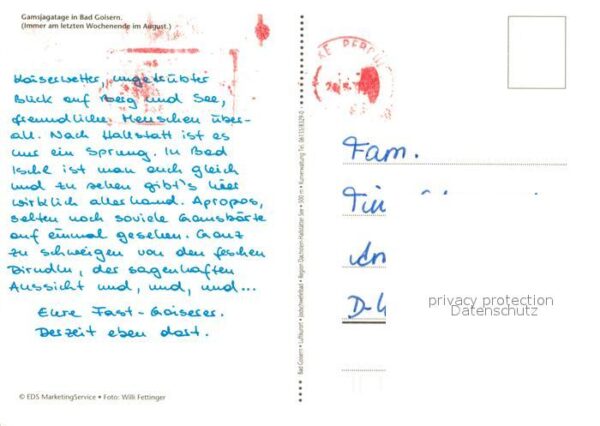 Gamsjagatage in Bad Goisern.
(Immer am letzten Wochenende im August.)
Kaiserwetter, ungetrübter
Blick auf Berg und See,
freundliche Menschen über-
all. Nach Hallstatt ist es
nur ein Sprung. In Bad
Ischl ist man auch gleich
und zu sehen gibt's hier
wirklich allerhand. Apropos,
selten noch soviele Gamsbärte
auf einmal gesehen. Ganz
zu schweigen von den feschen
Dirndln, der sagenhaften
Aussicht und, und, und...
Eure Fast-Goiserer.
Derzeit eben dort.
© EDS MarketingService • Foto: Willi Fettinger
Bad Goisern • Luftkurort • Jodschwefelbad • Region Dachstein-Hallstätter See • 500 m • Kurverwaltung Tel. 06135/8329-0
Fam.
D-
privacy protection
Datenschutz